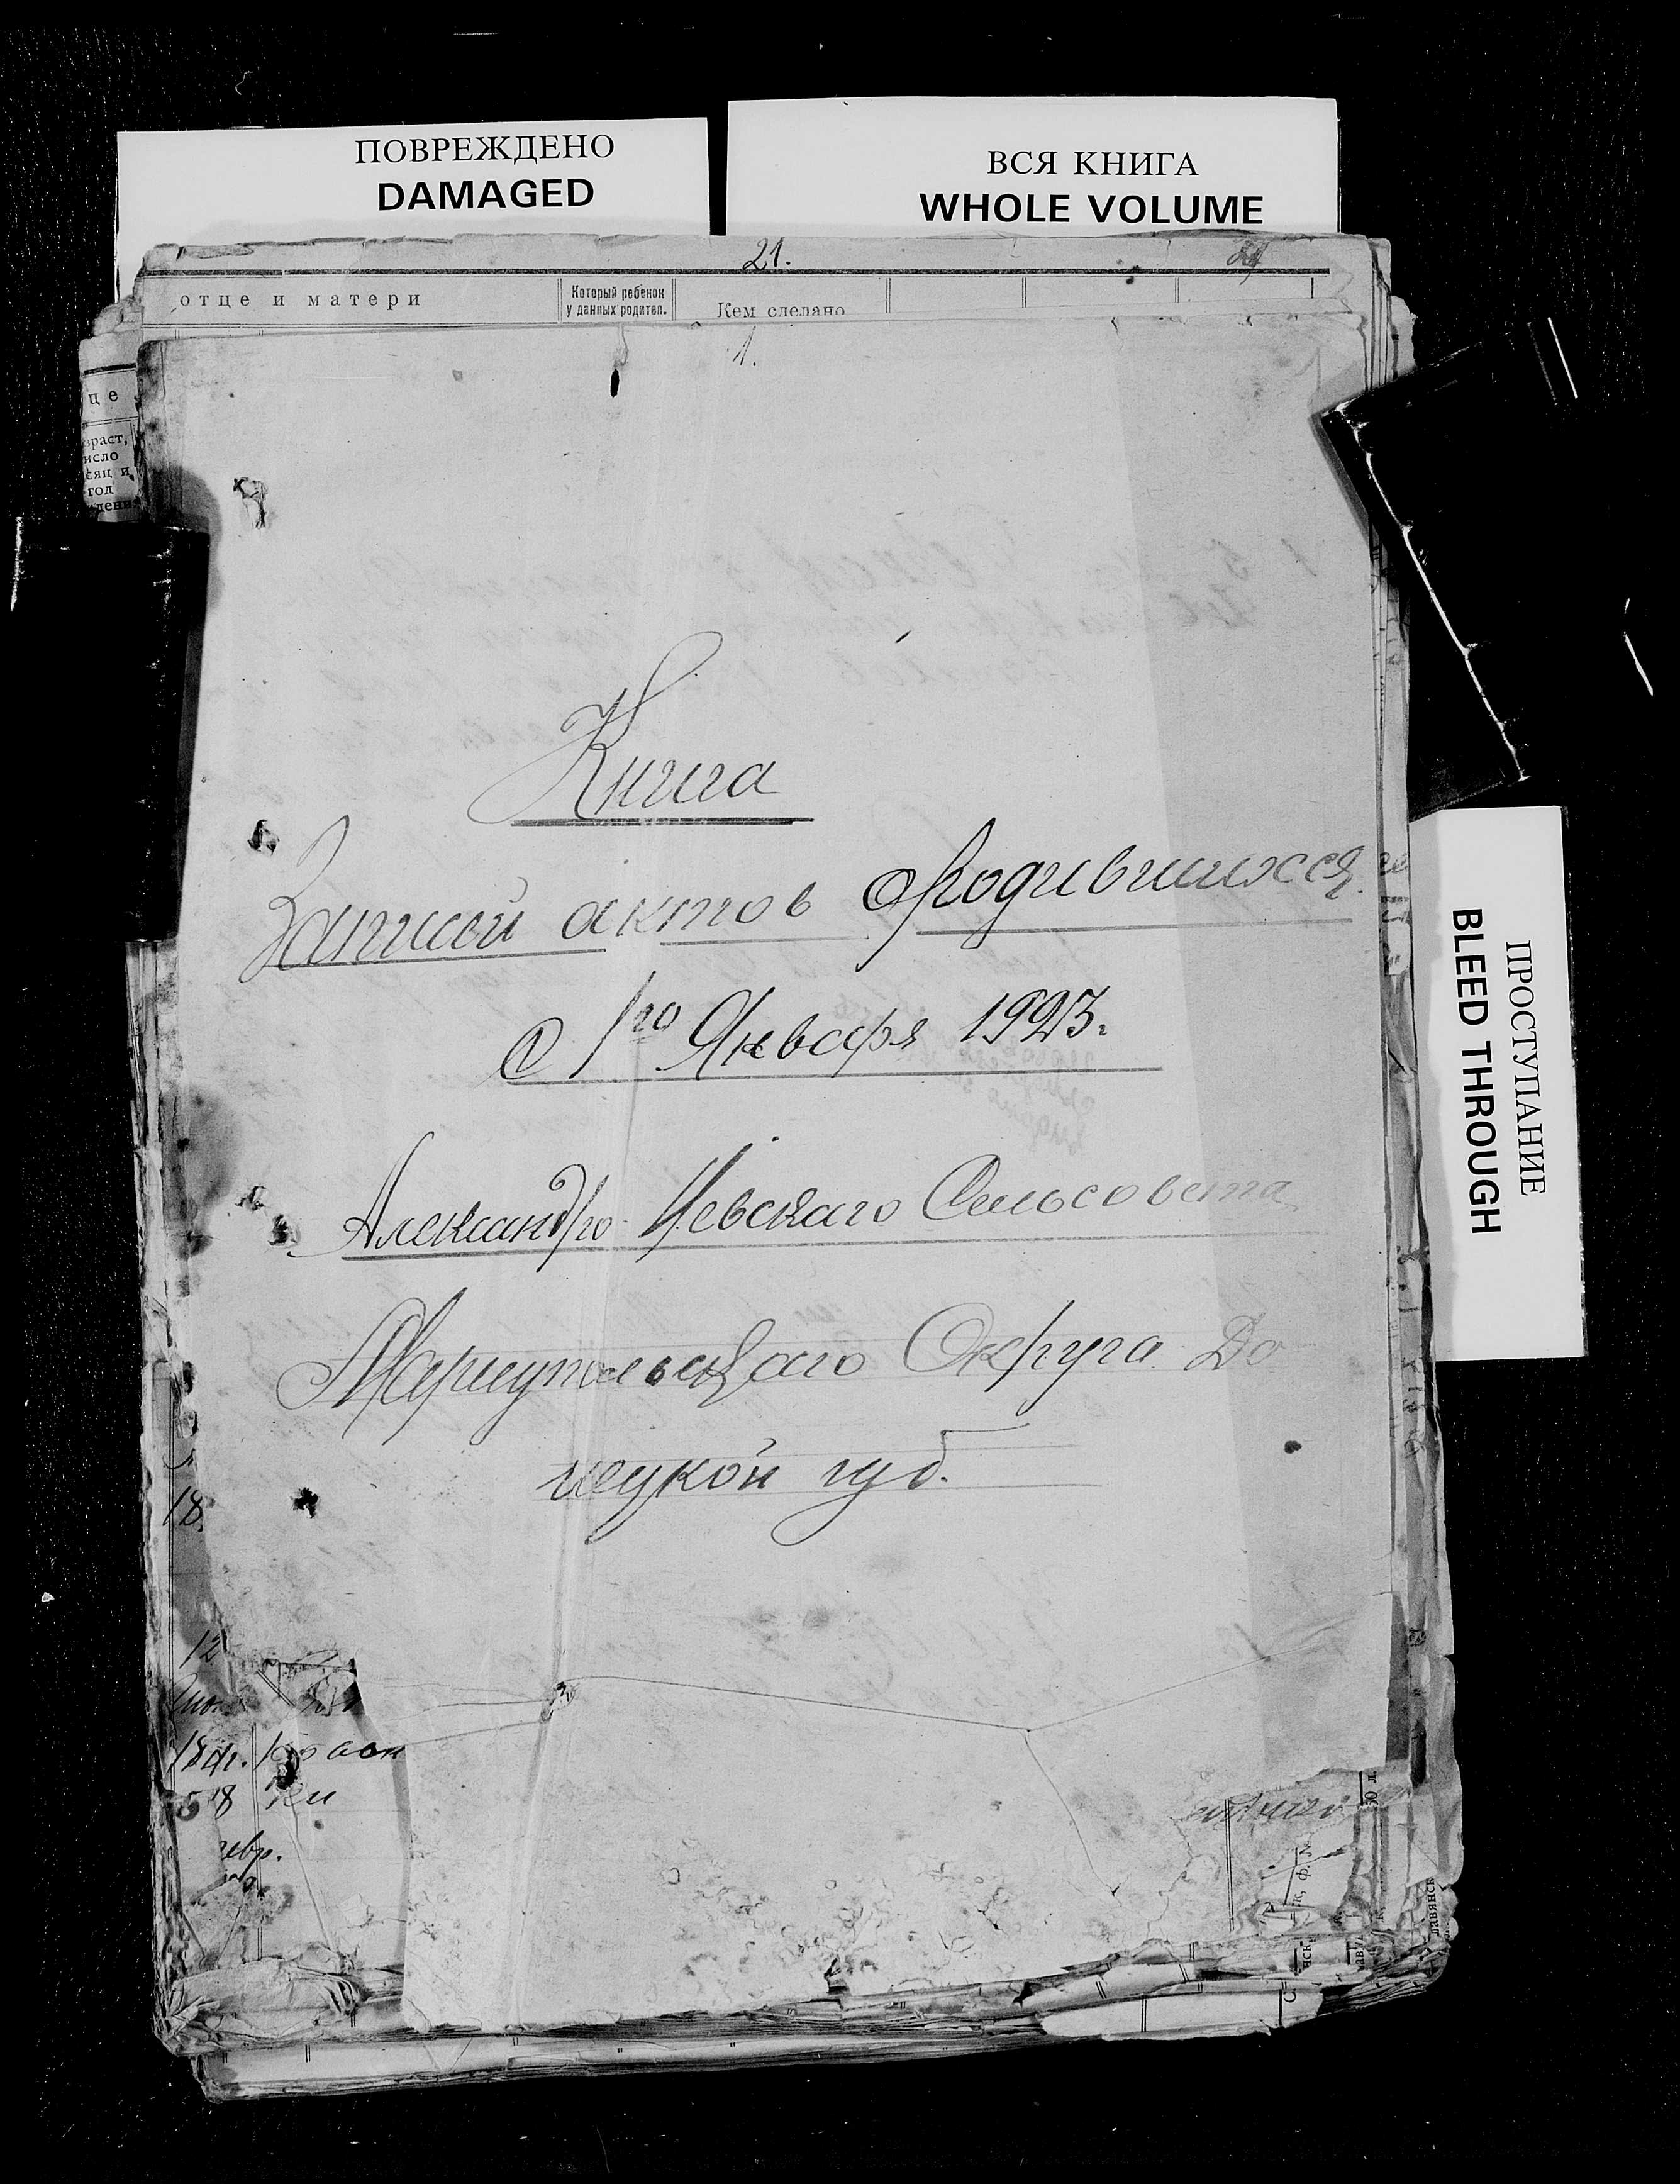 ПОВРЕЖДЕНО
DAMAGED
ВСЯ КНИГА
WHOLE VOLUME
21.
отце и матери
Который ребенок
у данных родител.
Кем сделано
1.
це
зраст,
исло
сяц и
год
Книга
Записей актов о Родившихся
С 1го Января 1923.
Александро-Невскаго Сельсовета
Мариупольскаго Округа До
нецкой губ.
ПРОСТУПАНИЕ
BLEED THROUGH
18.
12
18